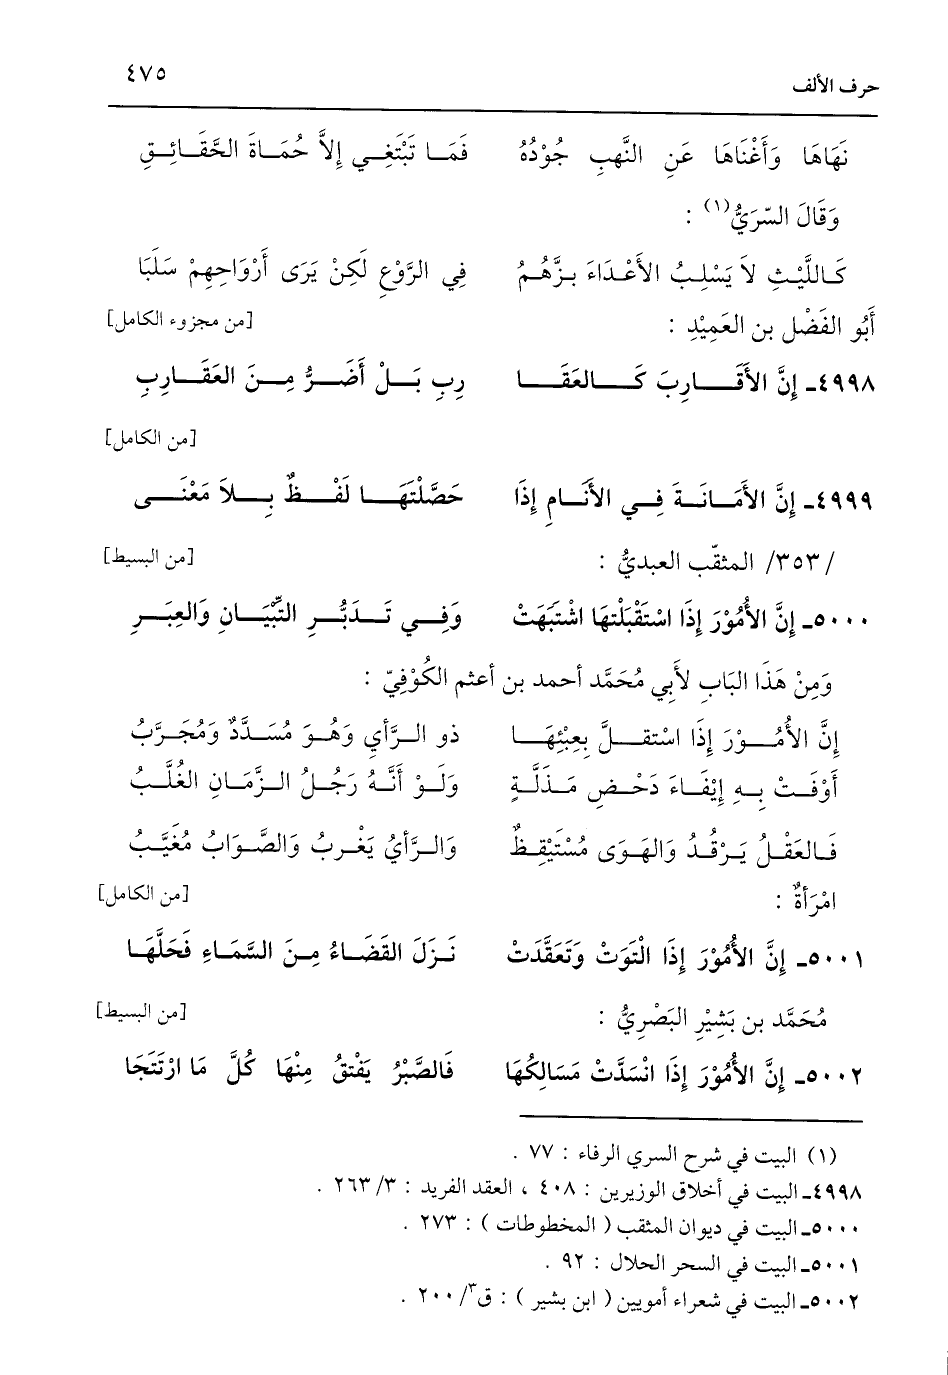 حرف الألف ٤٧٥
نَهَاهَا وَأَغْنَاهَا عَنِ النَّهبِ جُوْدُهُ فَمَـا تَبْتَغِـي إِلاَّ حُمَـاةَ الحَّقَـائِـقِ
وَقَالَ السّرَيُّ(١) :
كَـاللَّيْثِ لاَ يَسْلِـبُ الأَعْـدَاءَ بـزَّهُـمُ فِي الرَّوْعِ لَكِنْ يَرَى أَرْوَاحِهِمْ سَلَبَا
أَبُو الفَضْل بن العَمِيْدِ : [من مجزوء الكامل]
٤٩٩٨ـ إِنَّ الأَقَـــارِبَ كَـــالعَقَـــا رِبِ بَـــلْ أَضَـرُّ مِـــنَ العَقَـــارِبِ
[من الكامل]
٤٩٩٩ـ إِنَّ الأَمَـانَـةَ فِــي الأَنَـامِ إِذَا حَصَّلْتَهَـــا لَفْـــظٌ بِـــلاَ مَعْنَـــى
/٣٥٣/ المثقّب العبديُّ : [من البسيط]
٥٠٠٠ـ إِنَّ الأُمُوْرَ إِذَا اسْتَقْبَلْتهَا اشْتَبَهَتْ وَفِــي تَــدَبُّــرِ التِّبْيَــانِ وَالعِبَــرِ
وَمِنْ هَذَا البَابِ لأَبِي مُحَمَّد أحمد بن أعثم الكُوْفِيّ :
إِنَّ الأُمُــوْرَ إِذَا اسْتقــلَّ بِعِبْئِهَــا ذو الـرَّأي وَهُـوَ مُسَـدَّدٌ وَمُجَـرَّبُ
أَوْفَـتْ بِـهِ إِيْفَـاءَ دَحْـضِ مَـذَلَّـةٍ وَلَـوْ أَنَّـهُ رَجُـلُ الـزَّمَـانِ الغُلَّـبُ
فَـالعَقْـلُ يَـرْقُـدُ وَالهَـوَى مُسْتَيْقِـظٌ وَالـرَّأيُ يَغْـربُ وَالصَّـوَابُ مُغَيَّـبُ
امْرَأةٌ : [من الكامل]
٥٠٠١ـ إِنَّ الأُمُوْرَ إِذَا الْتَوَتْ وَتَعَقَّدَتْ نَـزَلَ القَضَـاءُ مِـنَ السَّمَـاءِ فَحَلَّهَـا
مُحَمَّد بن بَشِيْرِ البَصْرِيُّ : [من البسيط]
٥٠٠٢ـ إِنَّ الأُمُوْرَ إِذَا انْسَدَّتْ مَسَالِكُهَا فَالصَّبْرُ يَفْتقُ مِنْهَا كُلَّ مَا ارْتَتَجَا
(١) البيت في شرح السري الرفاء : ٧٧ .
٤٩٩٨ـ البيت في أخلاق الوزيرين : ٤٠٨ ، العقد الفريد : ٢٦٣/٣ .
٥٠٠٠ـ البيت في ديوان المثقب ( المخطوطات ) : ٢٧٣ .
٥٠٠١ـ البيت في السحر الحلال : ٩٢ .
٥٠٠٢ـ البيت في شعراء أمويين ( ابن بشير ) : ق٣/ ٢٠٠ .